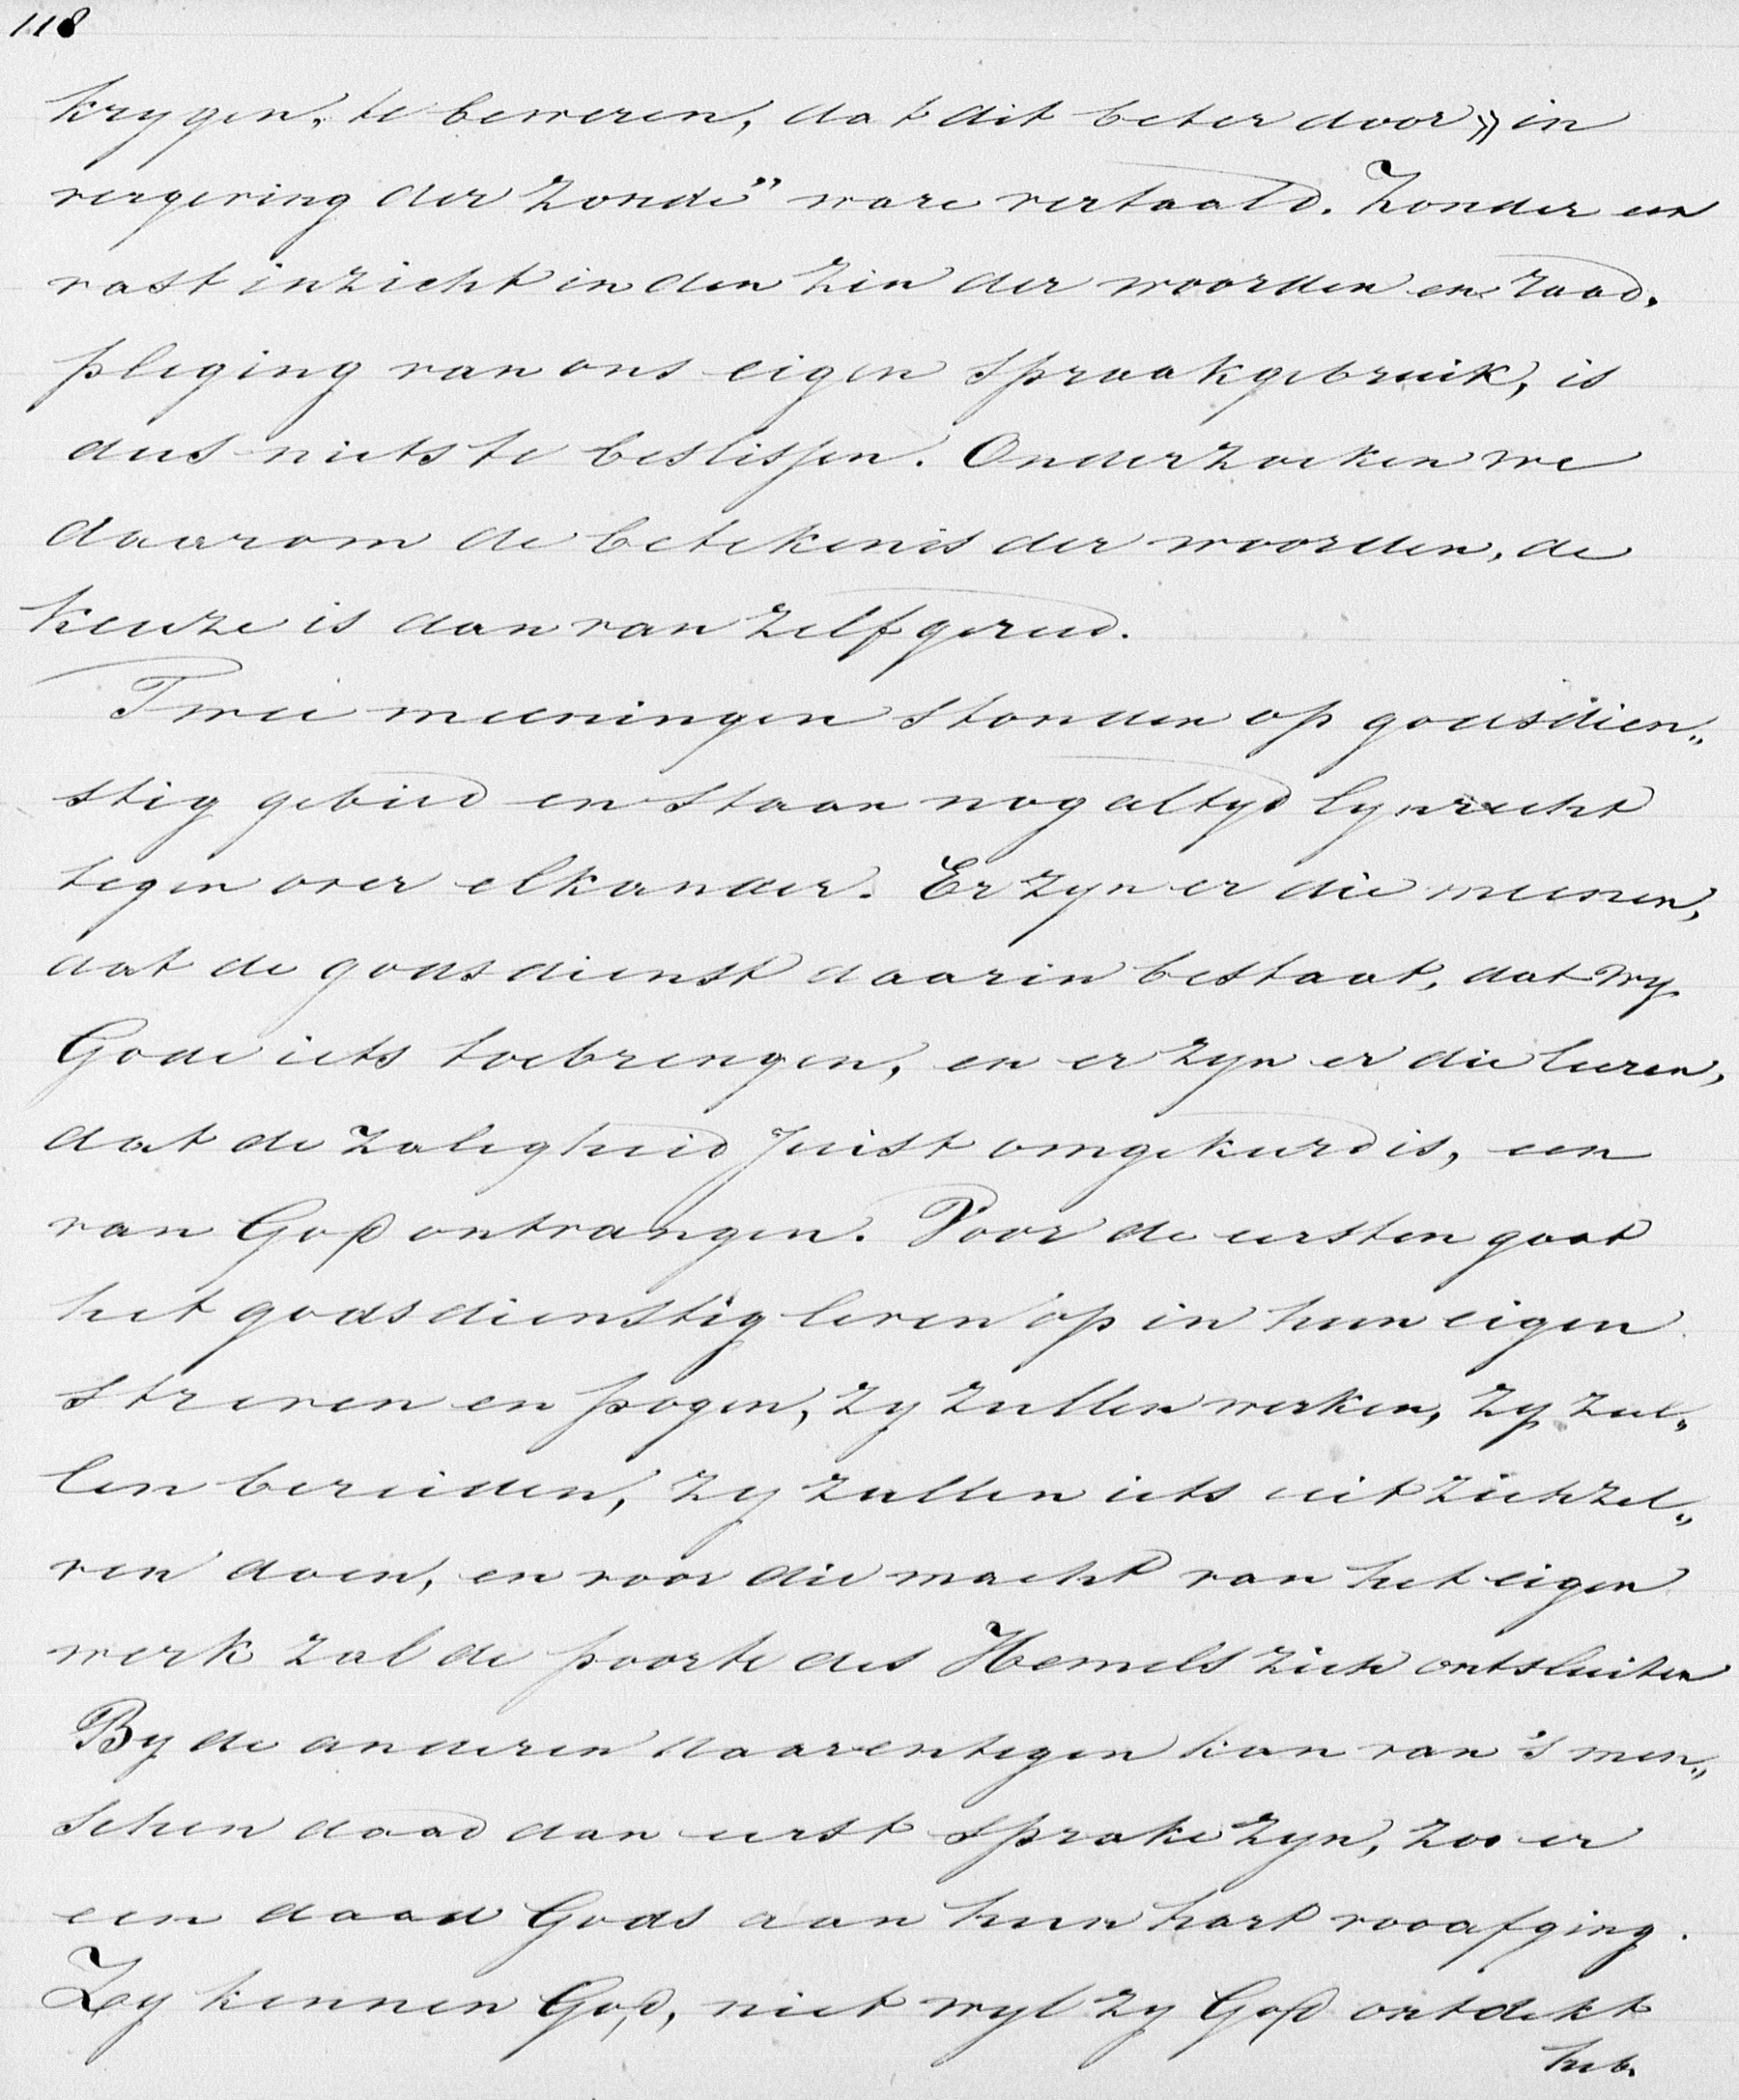 118
krygen, te beweren, dat dit beter door » in
vergeving der zonde" ware vertaald. Zonder een
vast inzicht in den zin der woorden en raad.
pleging van ons eigen spraakgebruik, is
dus niets te beslissen. Onderzoeken we
daarom de betekenis der woorden, de
keuze is dan van zelf gereed.
Twee meeningen stonden op godsdien„
stig gebied en staan nog altyd lynrecht
tegen over elkander. Er zyn er die meenen,
dat de godsdienst daarin bestaat, dat wy
Gode iets toebrengen, en er zyn er die leeren,
dat de zaligheid juist omgekeerd is, een
van God ontvangen. Voor de eersten gaat
het godsdienstig leven op in hun eigen
streven en pogen, zy zullen werken, zy zul„
len bereiden, zy zullen iets uit zichzel„
ven doen, en voor die macht van het eigen
werk zal de poorte des Hemels zich ontsluiten
By de anderen daarentegen kan van 's men„
schen daad dan eerst sprake zyn, zoo er
een daad Gods aan hun hart vooafging.
Zy kennen God, niet wyl zy God ontdekt
heb.